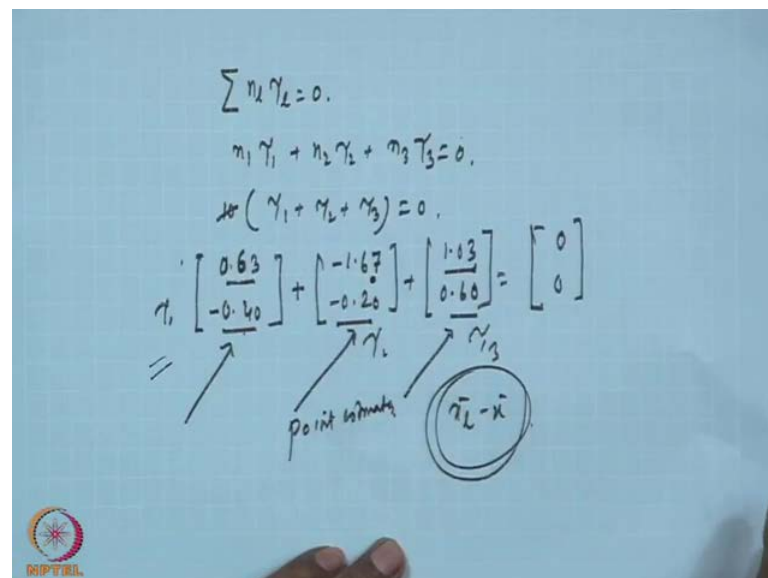 ∑ n_l τ_l = 0.
n_1 τ_1 + n_2 τ_2 + n_3 τ_3 = 0.
(τ_1 + τ_2 + τ_3) = 0.
τ_1 [0.63 -0.40] + [-1.67 -0.20] + [1.03 0.60] = [0 0]
τ_2 τ_3
point estimates x̄_l - x̄
NPTEL